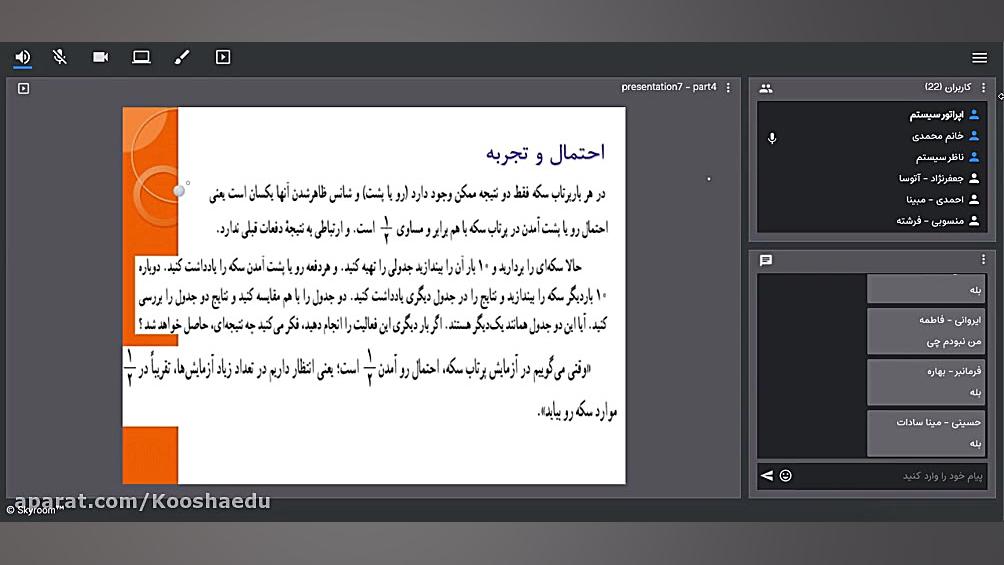 presentation7 - part4
احتمال و تجربه
در هر بار پرتاب سکه فقط دو نتیجه ممکن وجود دارد (رو یا پشت) و شانس ظاهرشدن آنها یکسان است یعنی
احتمال رو یا پشت آمدن در پرتاب سکه با هم برابر و مساوی ۱/۲ است. و ارتباطی به نتیجهٔ دفعات قبلی ندارد.
حالا سکه‌ای را بردارید و ۱۰ بار آن را بیندازید جدولی را تهیه کنید. و هردفعه رو یا پشت آمدن سکه را یادداشت کنید. دوباره
۱۰ باردیگر سکه را بیندازید و نتایج را در جدول دیگری یادداشت کنید. دو جدول را با هم مقایسه کنید و نتایج دو جدول را بررسی
کنید. آیا این دو جدول همانند یک‌دیگر هستند. اگر بار دیگری این فعالیت را انجام دهید، فکر می‌کنید چه نتیجه‌ای، حاصل خواهد شد ؟
«وقتی می‌گوییم در آزمایش پرتاب سکه، احتمال رو آمدن ۱/۲ است؛ یعنی انتظار داریم در تعداد زیاد آزمایش‌ها، تقریباً در ۱/۲
موارد سکه رو بیاید».
کاربران (22)
اپراتور سیستم
خانم محمدی
ناظر سیستم
جعفرنژاد - آتوسا
احمدی - مبینا
منسوبی - فرشته
بله
ایروانی - فاطمه
من نبودم چی
فرمانبر - بهاره
بله
حسینی - مینا سادات
بله
پیام خود را وارد کنید
aparat.com/Kooshaedu
© Skyroom™